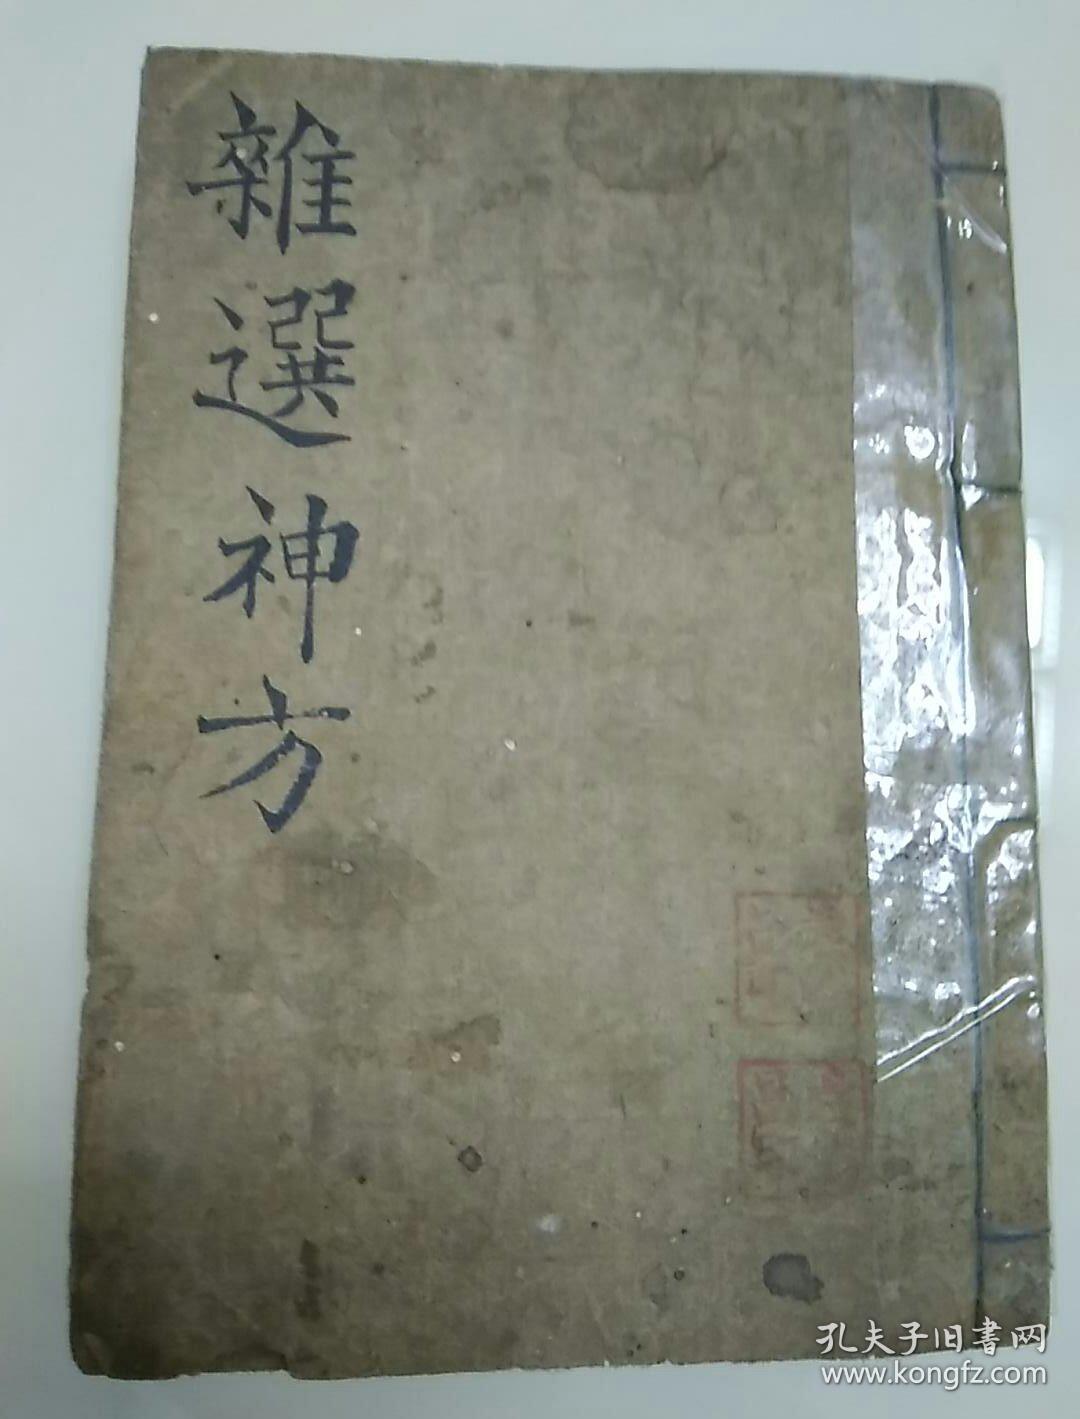 雜選神方
孔夫子旧書网
www.kongfz.com